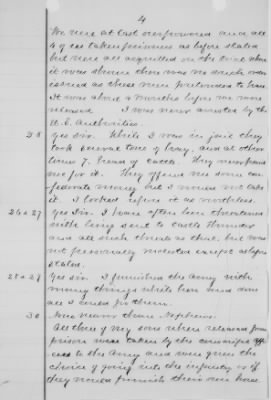 4
We were at last overpowered and all
4 of us taken prisoners as before stated
but were all acquitted on the trial when
it was shown there was no such
issued as these were pretended to have
It was about 2 months before we were
released. I was never arrested by the
U.S. Authorities.
25 Yes sir. While I was in jail they
took several tons of hay, and at other
times 7 head of cattle. They never paid
me for it. They offered me some con-
federate money but I would not take
it. I looked upon it as worthless.
26 & 27 Yes Sir. I have often been threatened
with being sent to Castle Thunder
and all such threats as that, but was
not personally molested except as before
stated.
28 & 29 Yes sir. I furnished the Army with
many things while here and done
all I could for them.
30 None nearer than Nephews.
All three of my sons when released from
prison were taken by the conscript offi-
cers to the Army and were given the
choice of going into the infantry or if
they would furnish their own horse